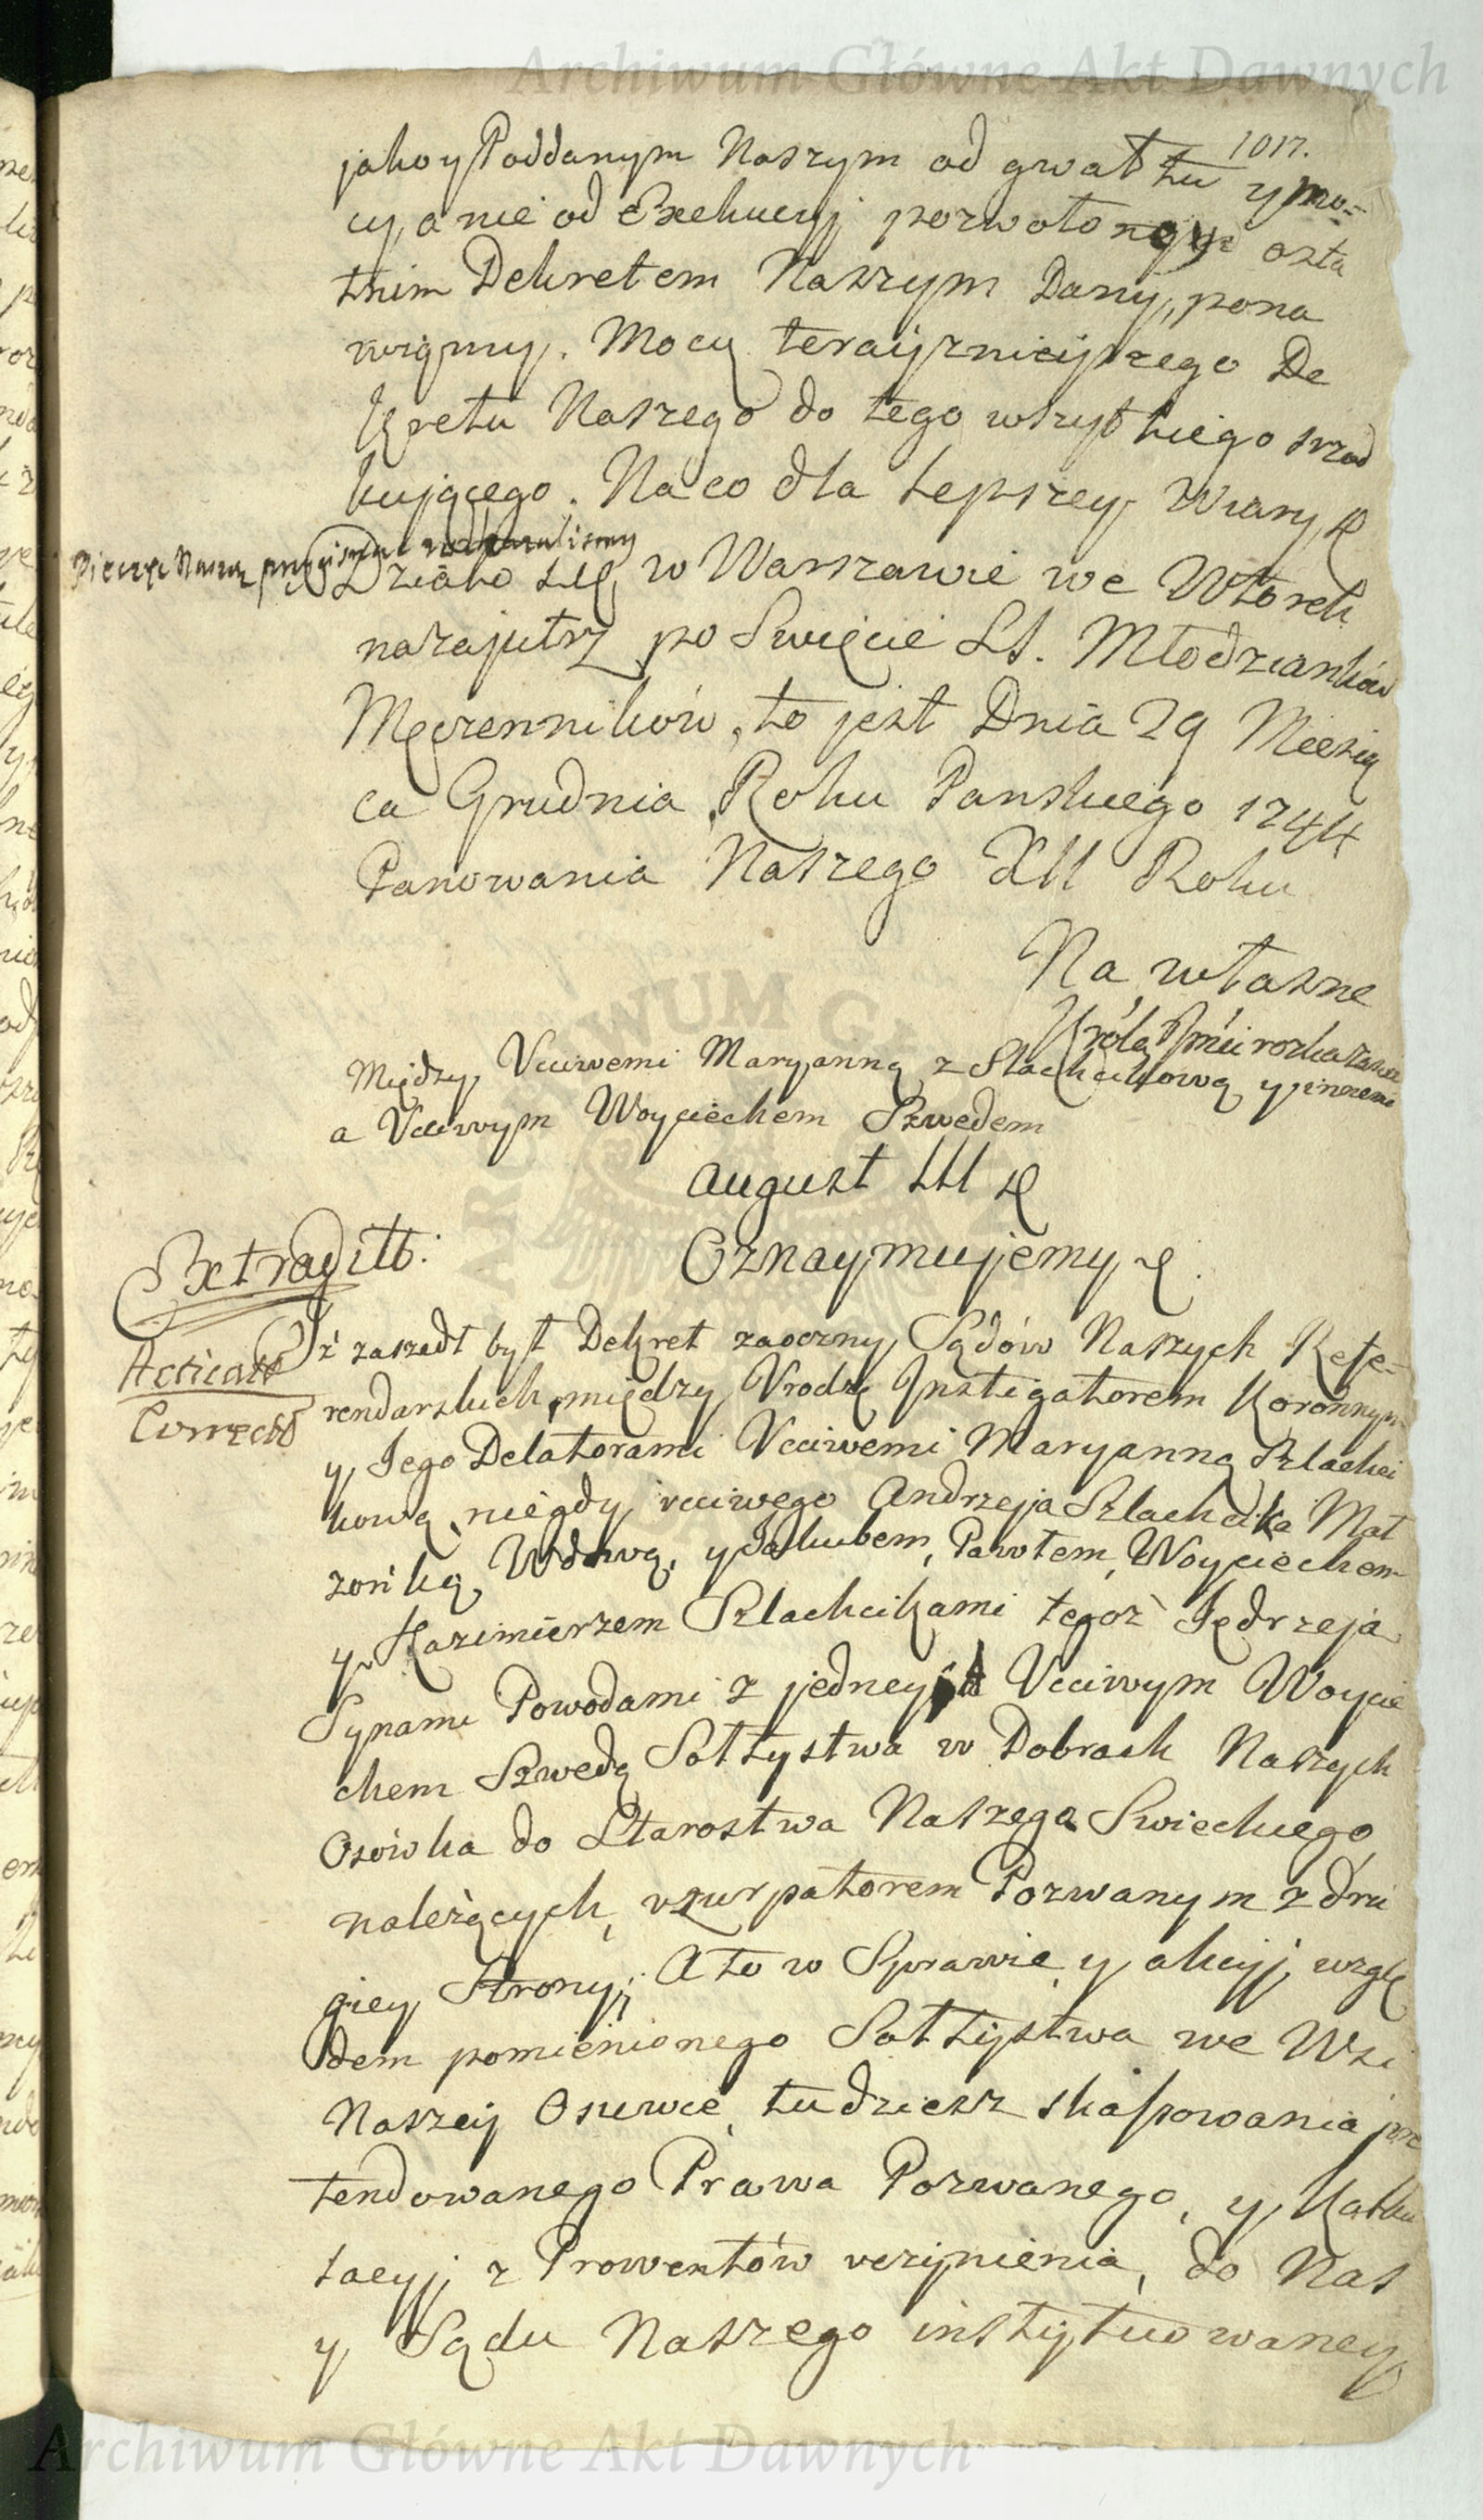 Archiwum Główne Akt Dawnych
1017.
jako y Poddanym Naszym od gwałtu y mo-
cy, a nie od Exekucyj pozwolony osta
tnim Dekretem Naszym Dany, pona
wiamy. Mocą teraźnieyszego De
kretu Naszego do tego wszytkiego srzod
kującego. Na co dla lepszey Wiary, &
Pieczęć Naszą przycisnąć rozkazalismy
Działo się w Warszawie we Wtorek
nazajutrz po Swięcie SS. Młodzianków
Męczenników, to jest Dnia 29 Miesią
ca Grudnia, Roku Panskiego 1744
Panowania Naszego XII Roku
Na własne
Króla Jmci rozkazanie
Między Ucciwemi Maryanną z Slachcikową y innemi
a Ucciwym Woyciechem Szwedem
August III &
Oznaymujemy &.
Extraditt:
Iż zaszedł był Dekret zaoczny Sądów Naszych Refe-
Acticatt
rendarskich, między Urodz Instigatorem Koronnym
Correctt
y Jego Delatorami Uccivemi Maryanną Szlachci
kową, niegdy ucciwego Andrzeja Szlachcika Mał
zonką, Wdową, y Jakubem, Pawłem, Woyciechem
y Kazimierzem Szlachcikami tegoż Jędrzeja
Synami Powodami z jedney, a Uccivym Woycie
chem Szwedą Sołtystwa w Dobrach Naszych
Osówka do Starostwa Naszego Swieckiego
należących, uzurpatorem Pozwanym z dru
giey Strony; A to w Sprawie y akcyj, wzglę
dem pomienionego Sołtystwa we Wsi
Naszey Osuwce, tudziesz skassowania pre
tendowanego Prawa Pozwanego, y Kalku
lacyj z Prowentów uczynienia, do Nas
y Sądu Naszego instytuowaney
Archiwum Główne Akt Dawnych